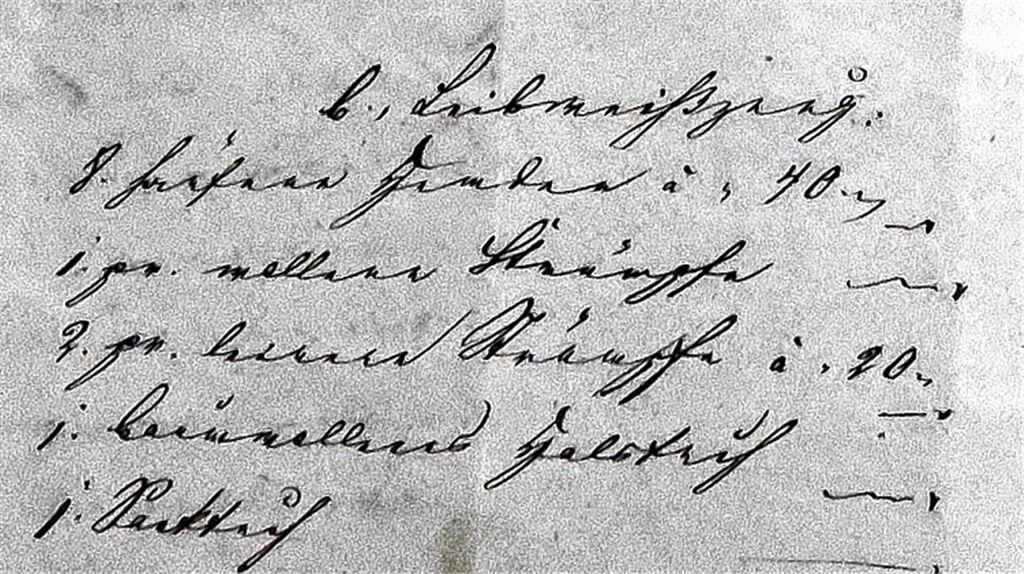 b., Leibweißzeug.
8. härfene Hemden à „ 40.
1. pr. wollene Strümpfe
2. pr. leinene Strümpfe à „ 20
1. baumwollenes Halstuch
1. Sacktuch